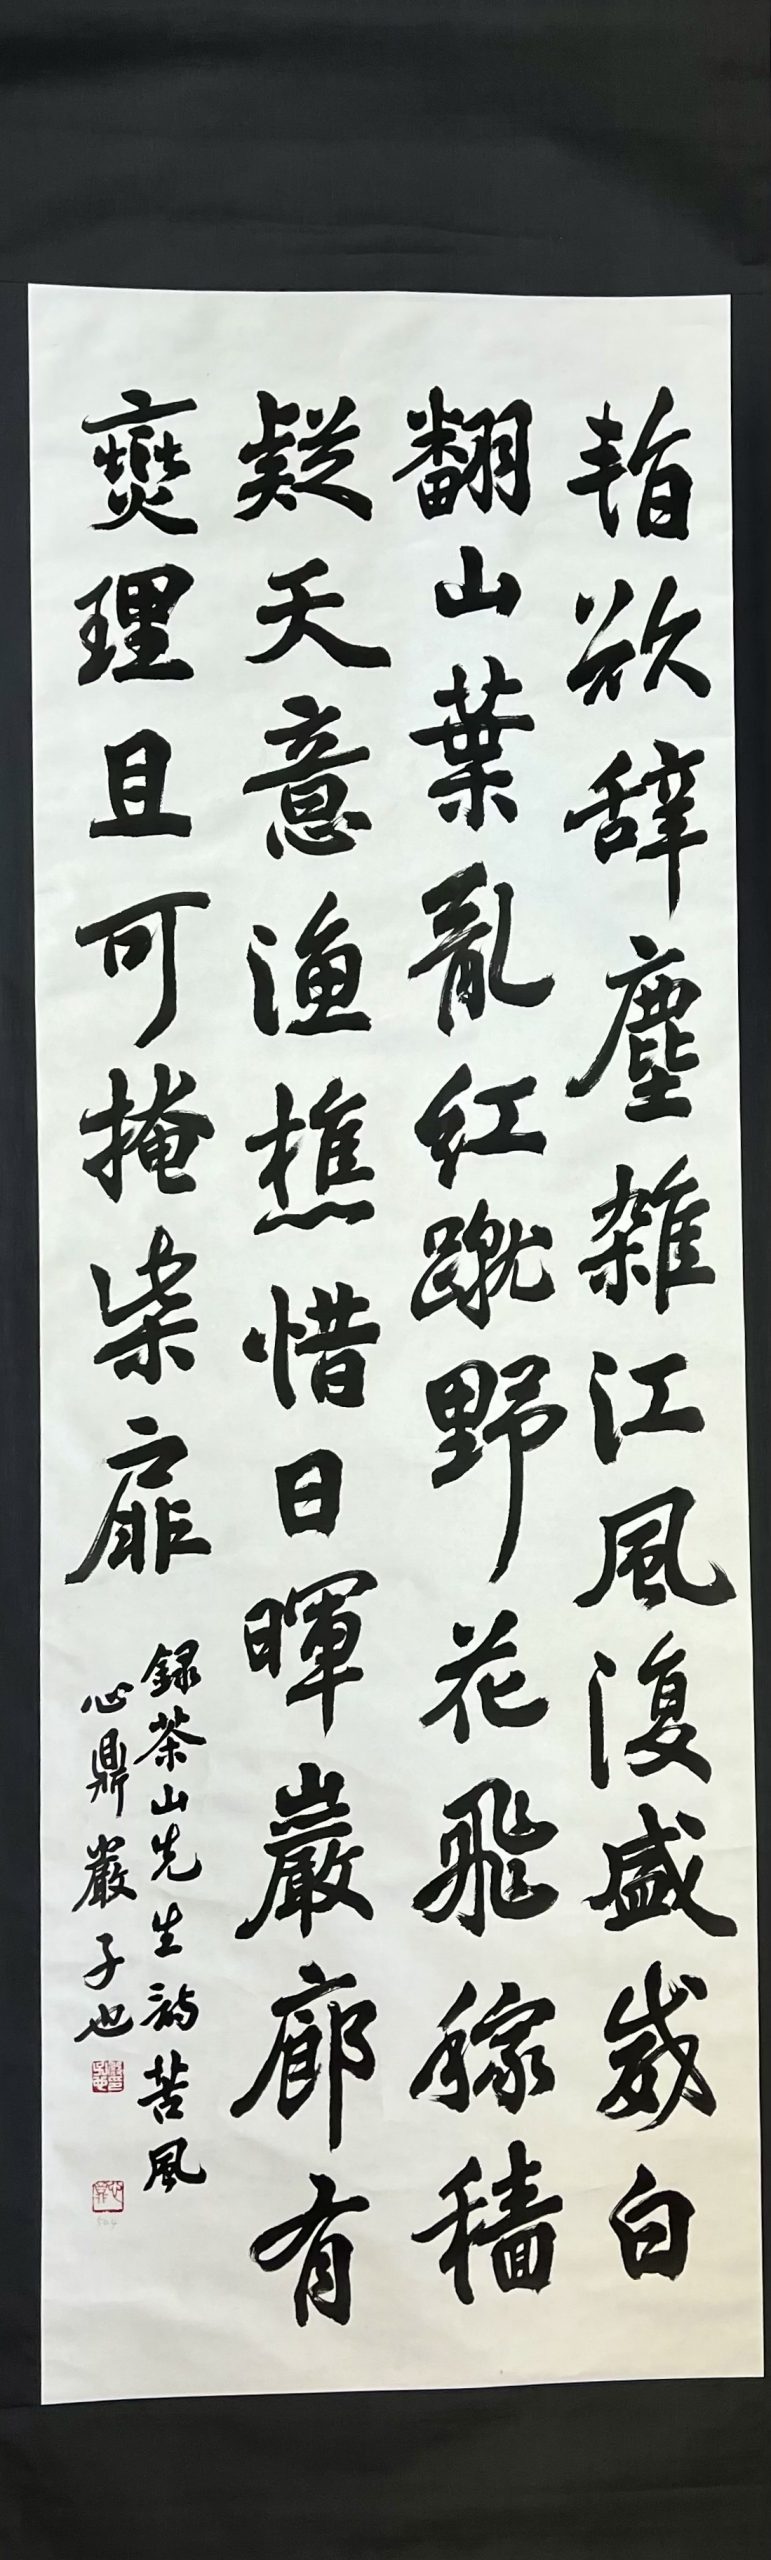 暫欲辭塵雜江風復盛威白
翻山葉亂紅蹴野花飛稼穡
疑天意漁樵惜日暉巖廊有
燮理且可掩柴扉
録茶山先生詩苦風
心鼎嚴子也